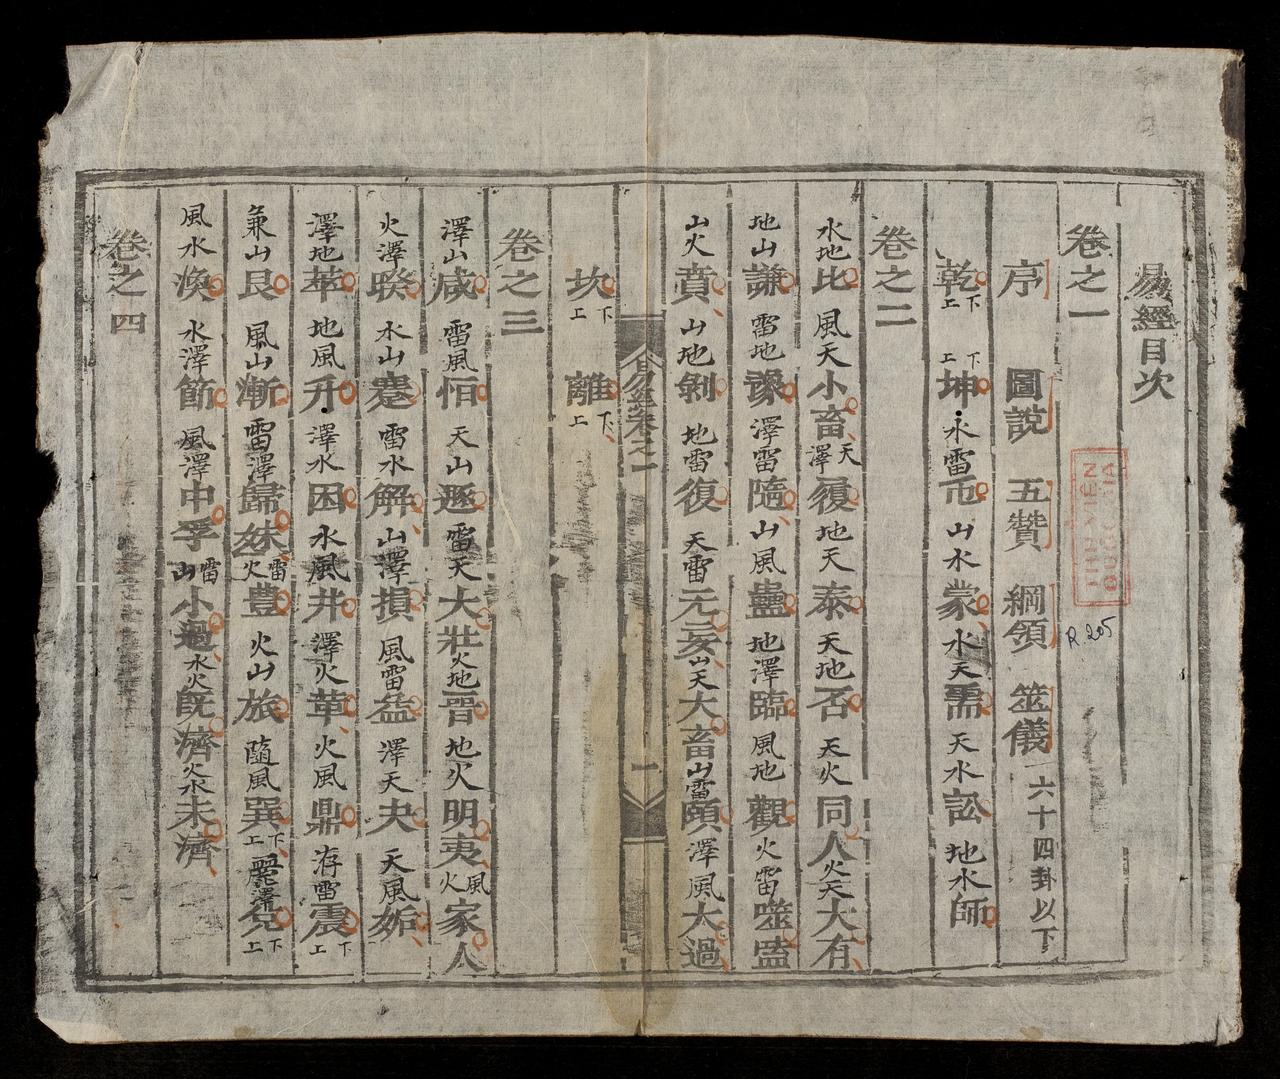 易經目次
卷之一
序 圖說 五贊 綱領 筮儀 六十四卦以下
乾上下 坤上下 水雷屯 山水蒙 水天需 天水訟 地水師
卷之二
水地比 風天小畜 天澤履 地天泰 天地否 天火同人 火天大有
地山謙 雷地豫 澤雷隨 山風蠱 地澤臨 風地觀 火雷噬嗑
山火賁 山地剝 地雷復 天雷无妄 山天大畜 山雷頤 澤風大過
易經卷之一
一
坎上下 離上下
卷之三
澤山咸 雷風恒 天山遯 雷天大壯 火地晋 地火明夷 風火家人
火澤睽 水山蹇 雷水解 山澤損 風雷益 澤天夬 天風姤
澤地萃 地風升 澤水困 水風井 澤火革 火風鼎 洊雷震上下
兼山艮 風山漸 雷澤歸妹 雷火豊 火山旅 隨風巽上下 麗澤兌上下
風水渙 水澤節 風澤中孚 雷山小過 水火既濟 火水未濟
卷之四
R.205